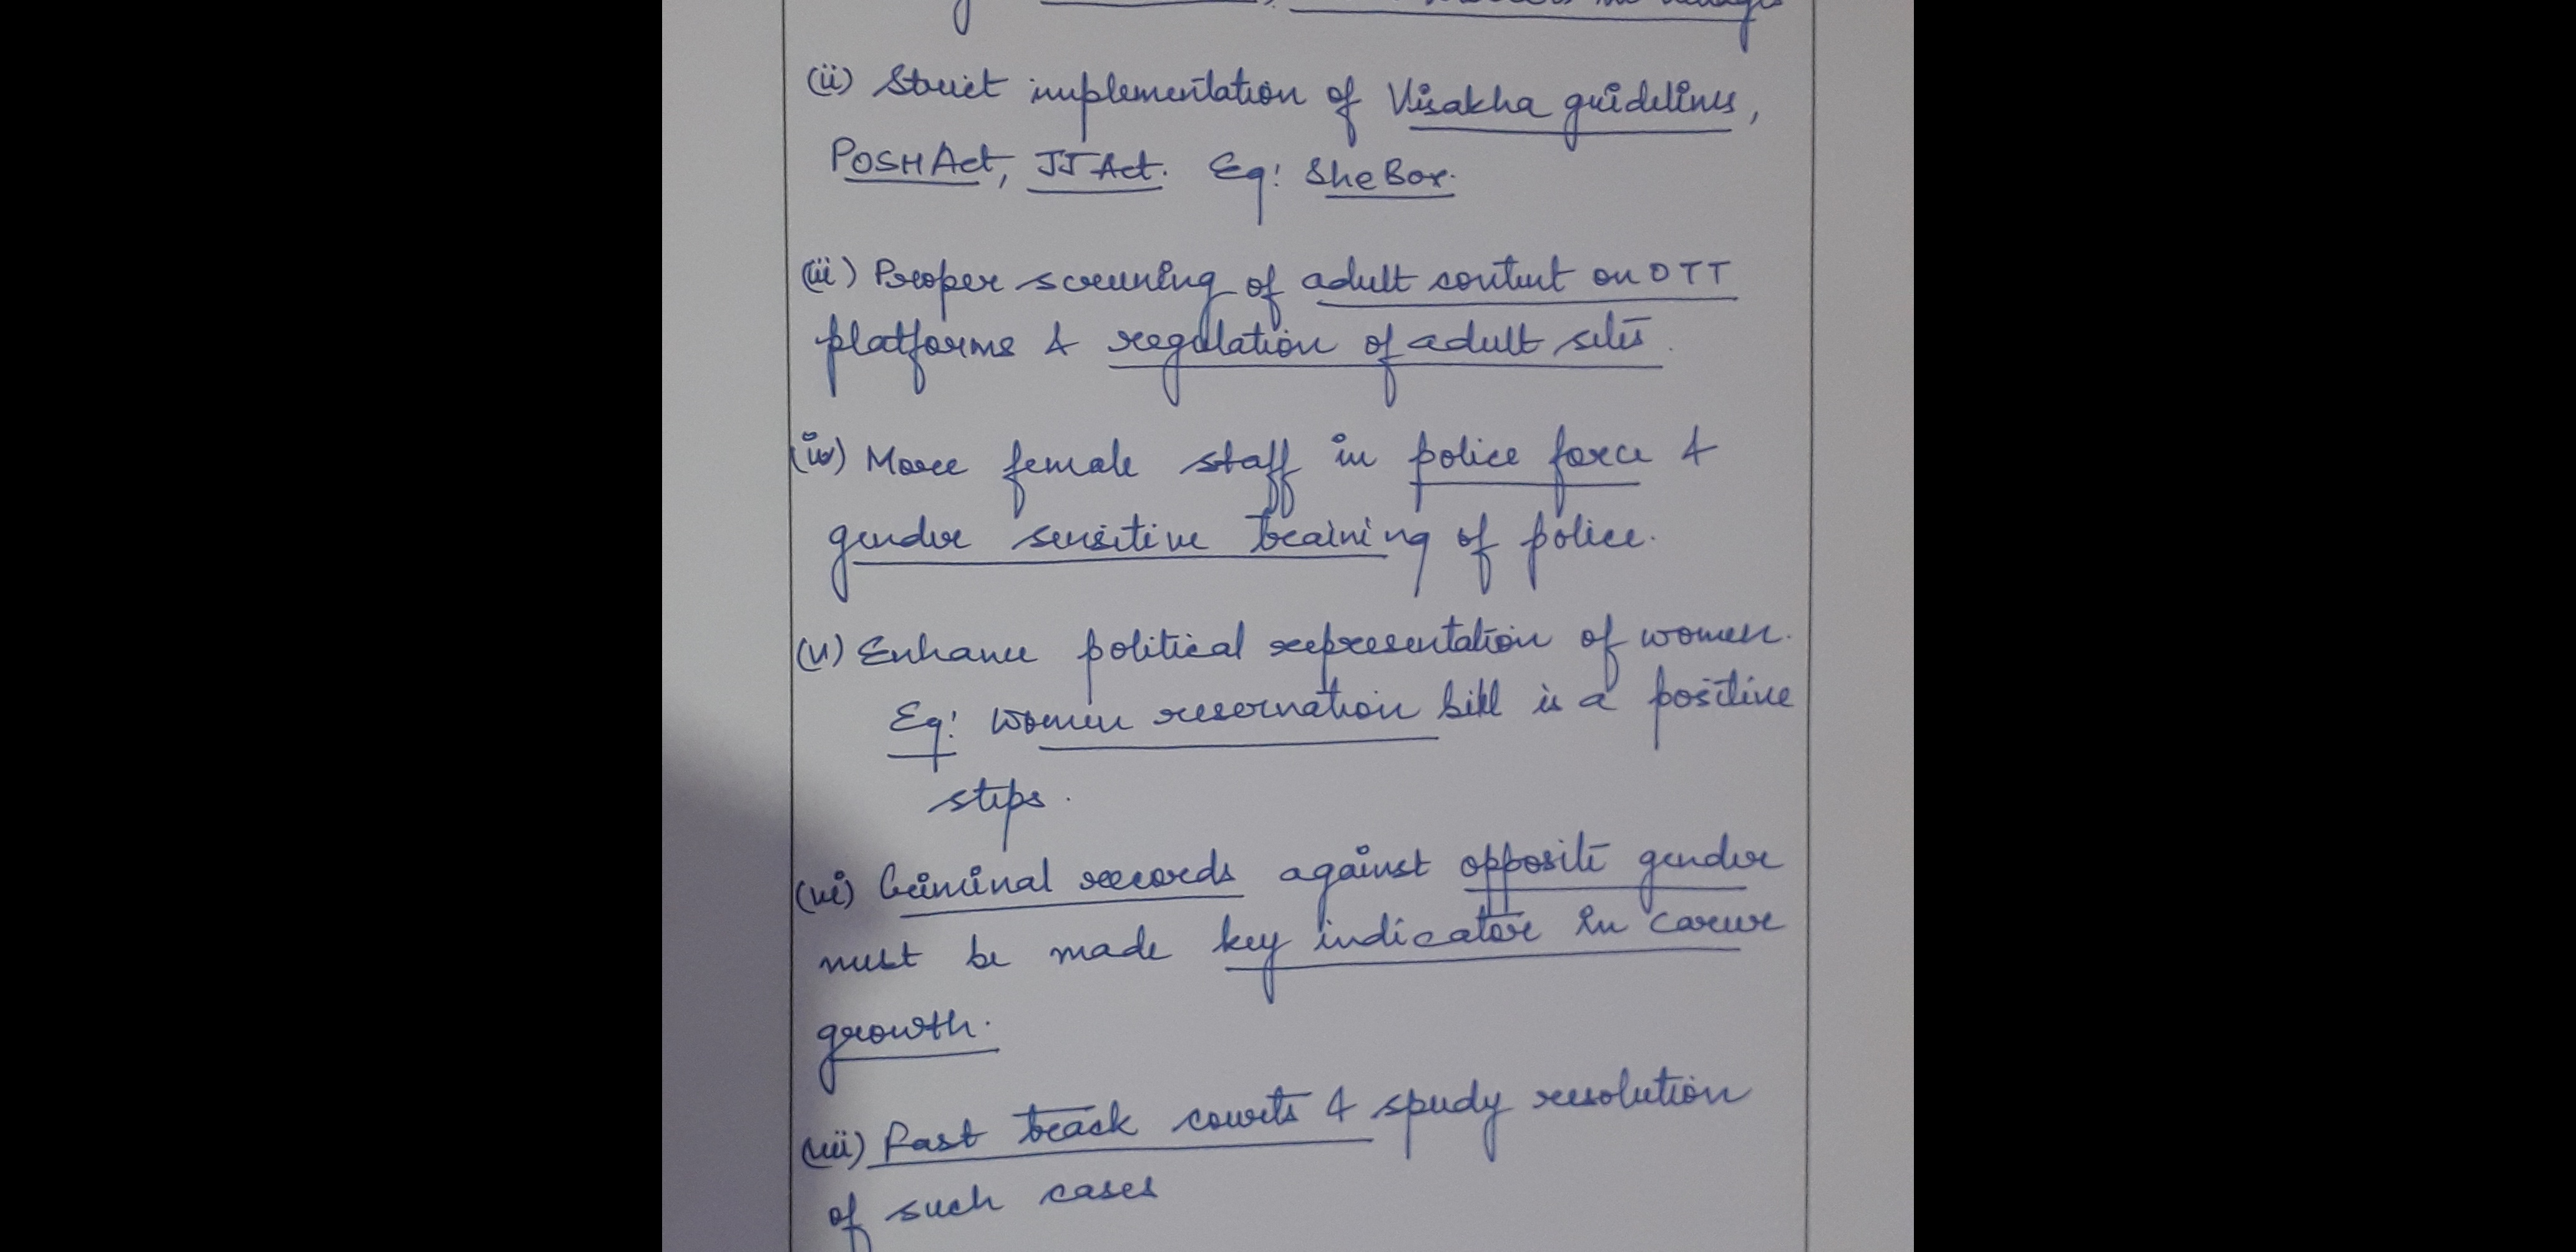 (ii) Strict implementation of Visakha guidelines,
POSH Act, JJ Act. Eg: She Box.
(iii) Proper screening of adult content on OTT
platforms & regulation of adult sites.
(iv) More female staff in police force &
gender sensitive training of police.
(v) Enhance political representation of women.
Eg: women reservation bill is a positive
steps.
(vi) Criminal records against opposite gender
must be made key indicator in career
growth.
(vii) Fast track courts & speedy resolution
of such cases